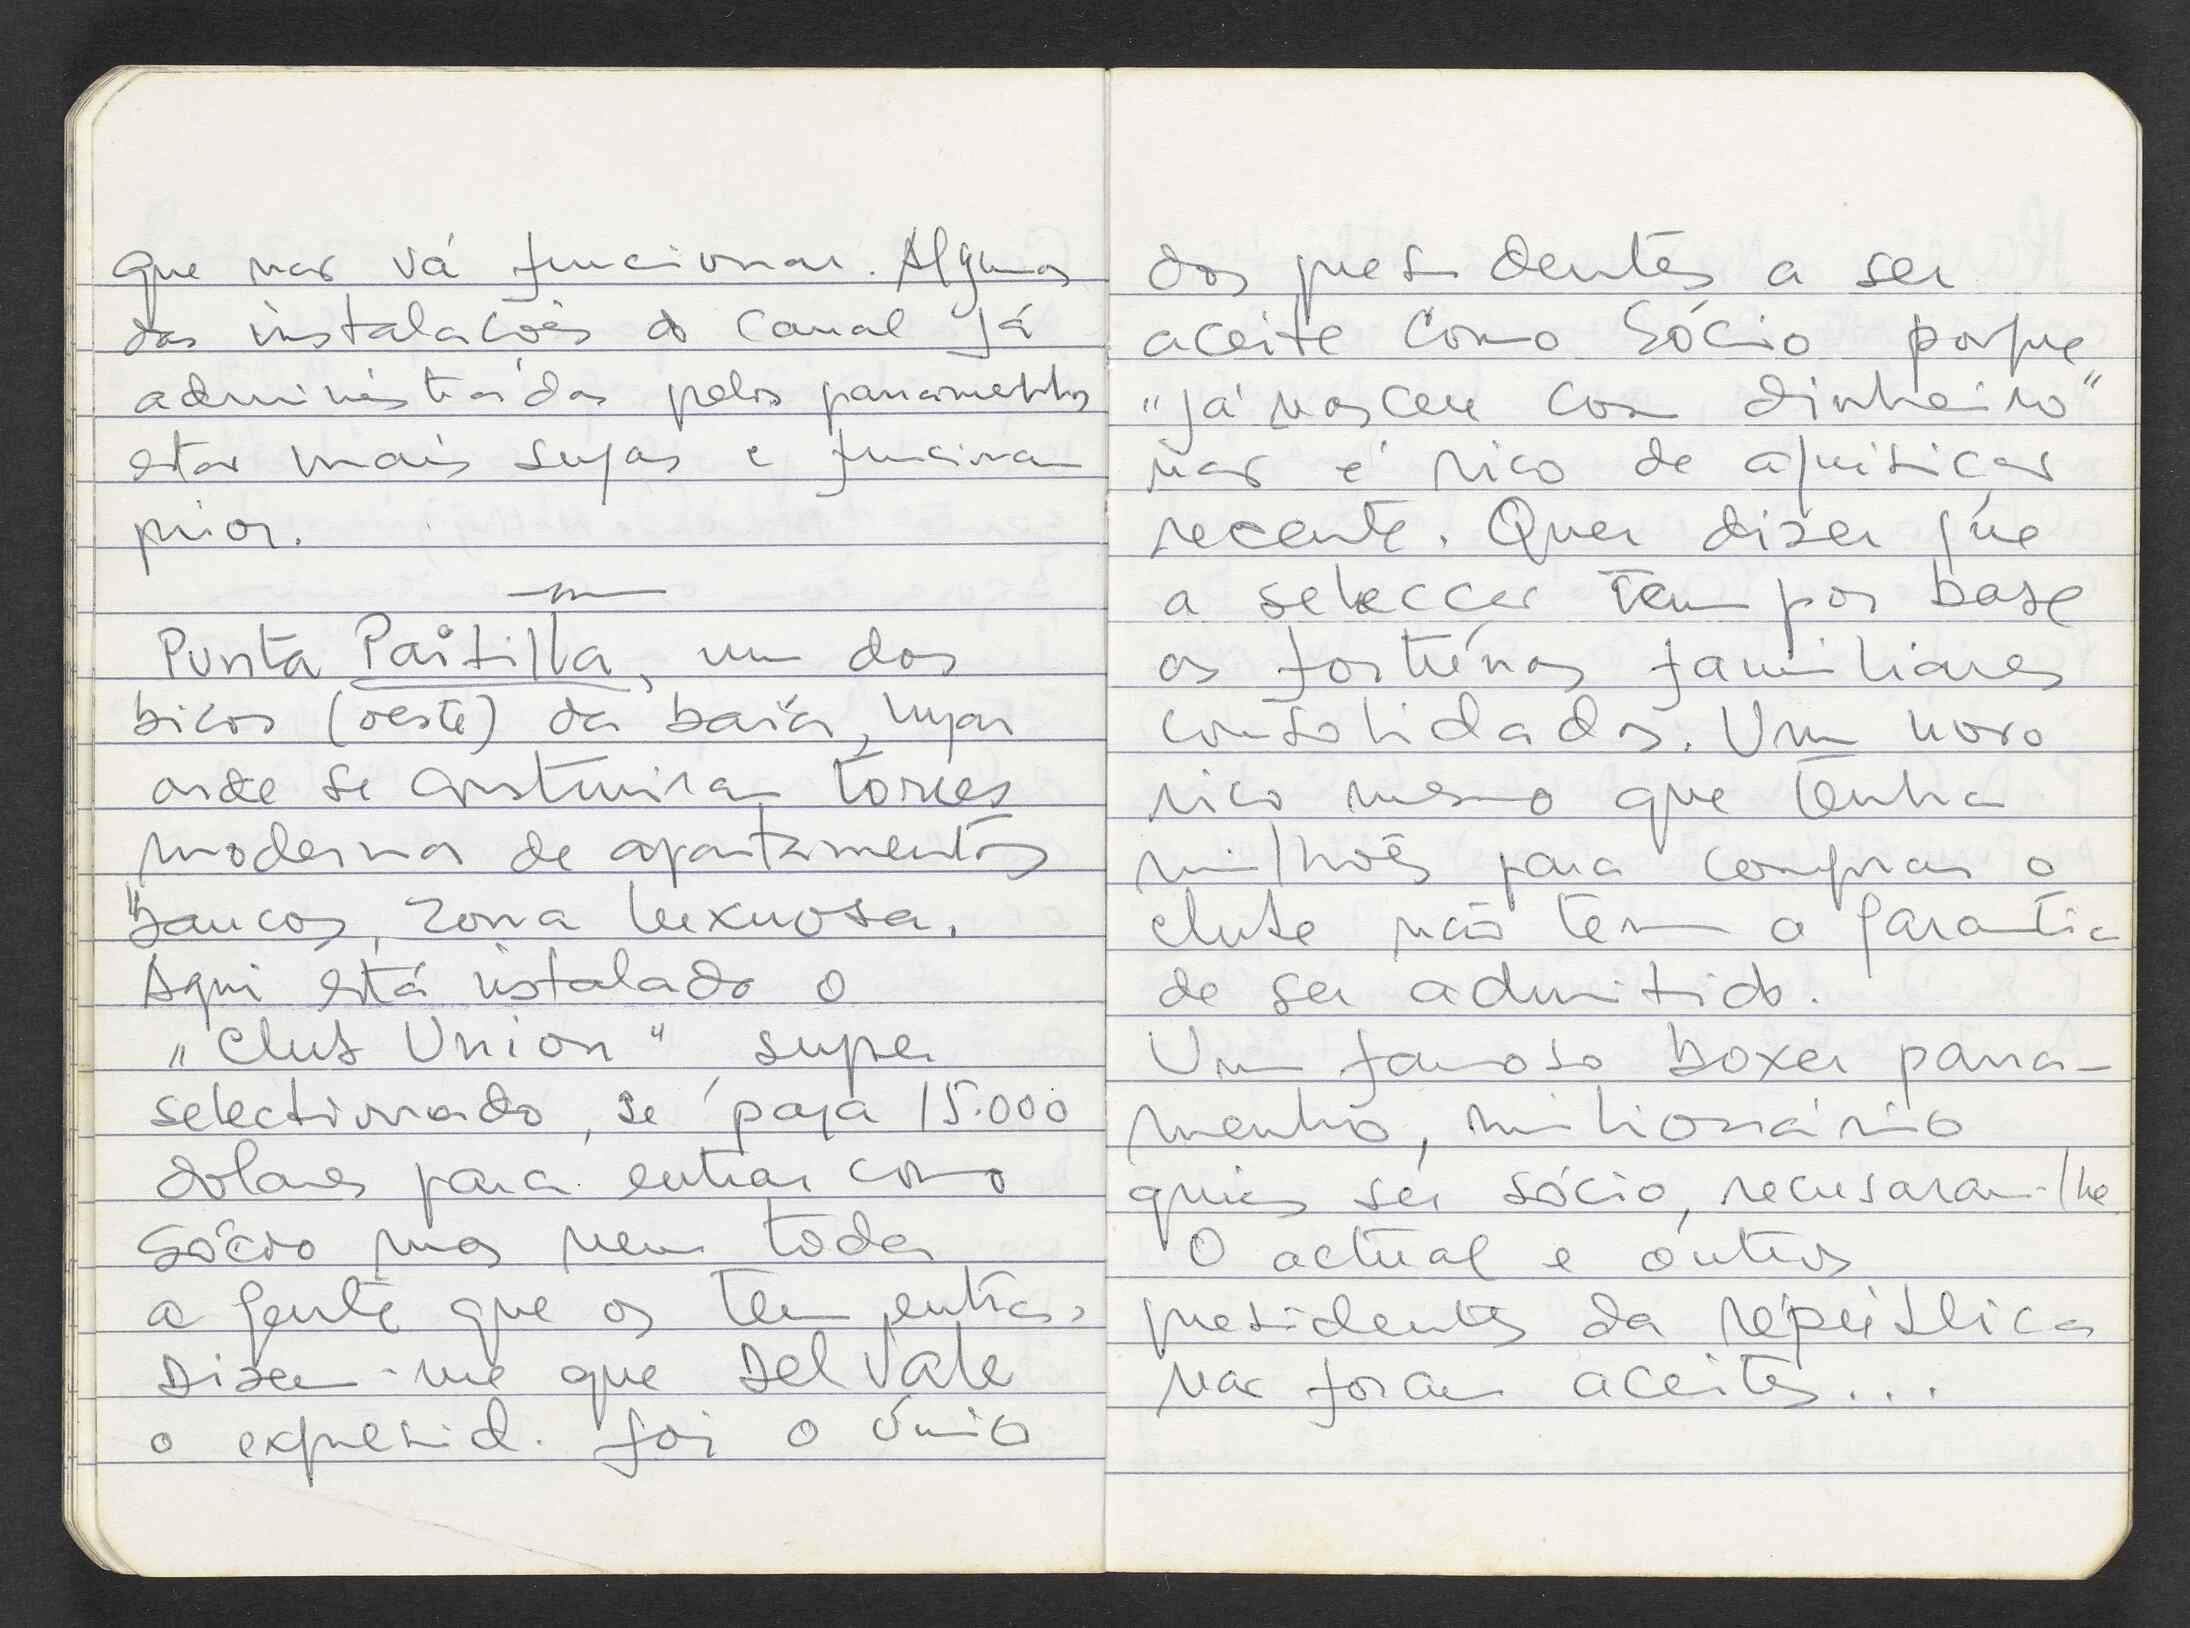 que não vá funcionar. Algumas
das instalações do Canal já
administradas pelos panamenhos
estão mais sujas e funcionam
pior.
Punta Paitilla, um dos
bicos (oeste) da baía, lugar
onde se construiram torres
modernas de apartamentos
bancos, zona luxuosa.
Aqui está instalado o
"Club Union" super
selectionado, se paga 15.000
dolares para entrar como
Sócio mas nem toda
a gente que os tem entra.
Dizem-me que Del Valle
o expresid. foi o único
dos presidentes a ser
aceite como Sócio porque
"já nasceu com dinheiro"
não é rico de aquisição
recente. Quer dizer que
a selecção tem por base
as fortunas familiares
consolidadas. Um novo
rico mesmo que tenha
milhões para comprar o
clube não tem a garantia
de ser admitido.
Um famoso boxer pana-
menho, milionário
quis ser sócio, recusaram-lhe
O actual e outros
presidentes da républica
não foram aceites...